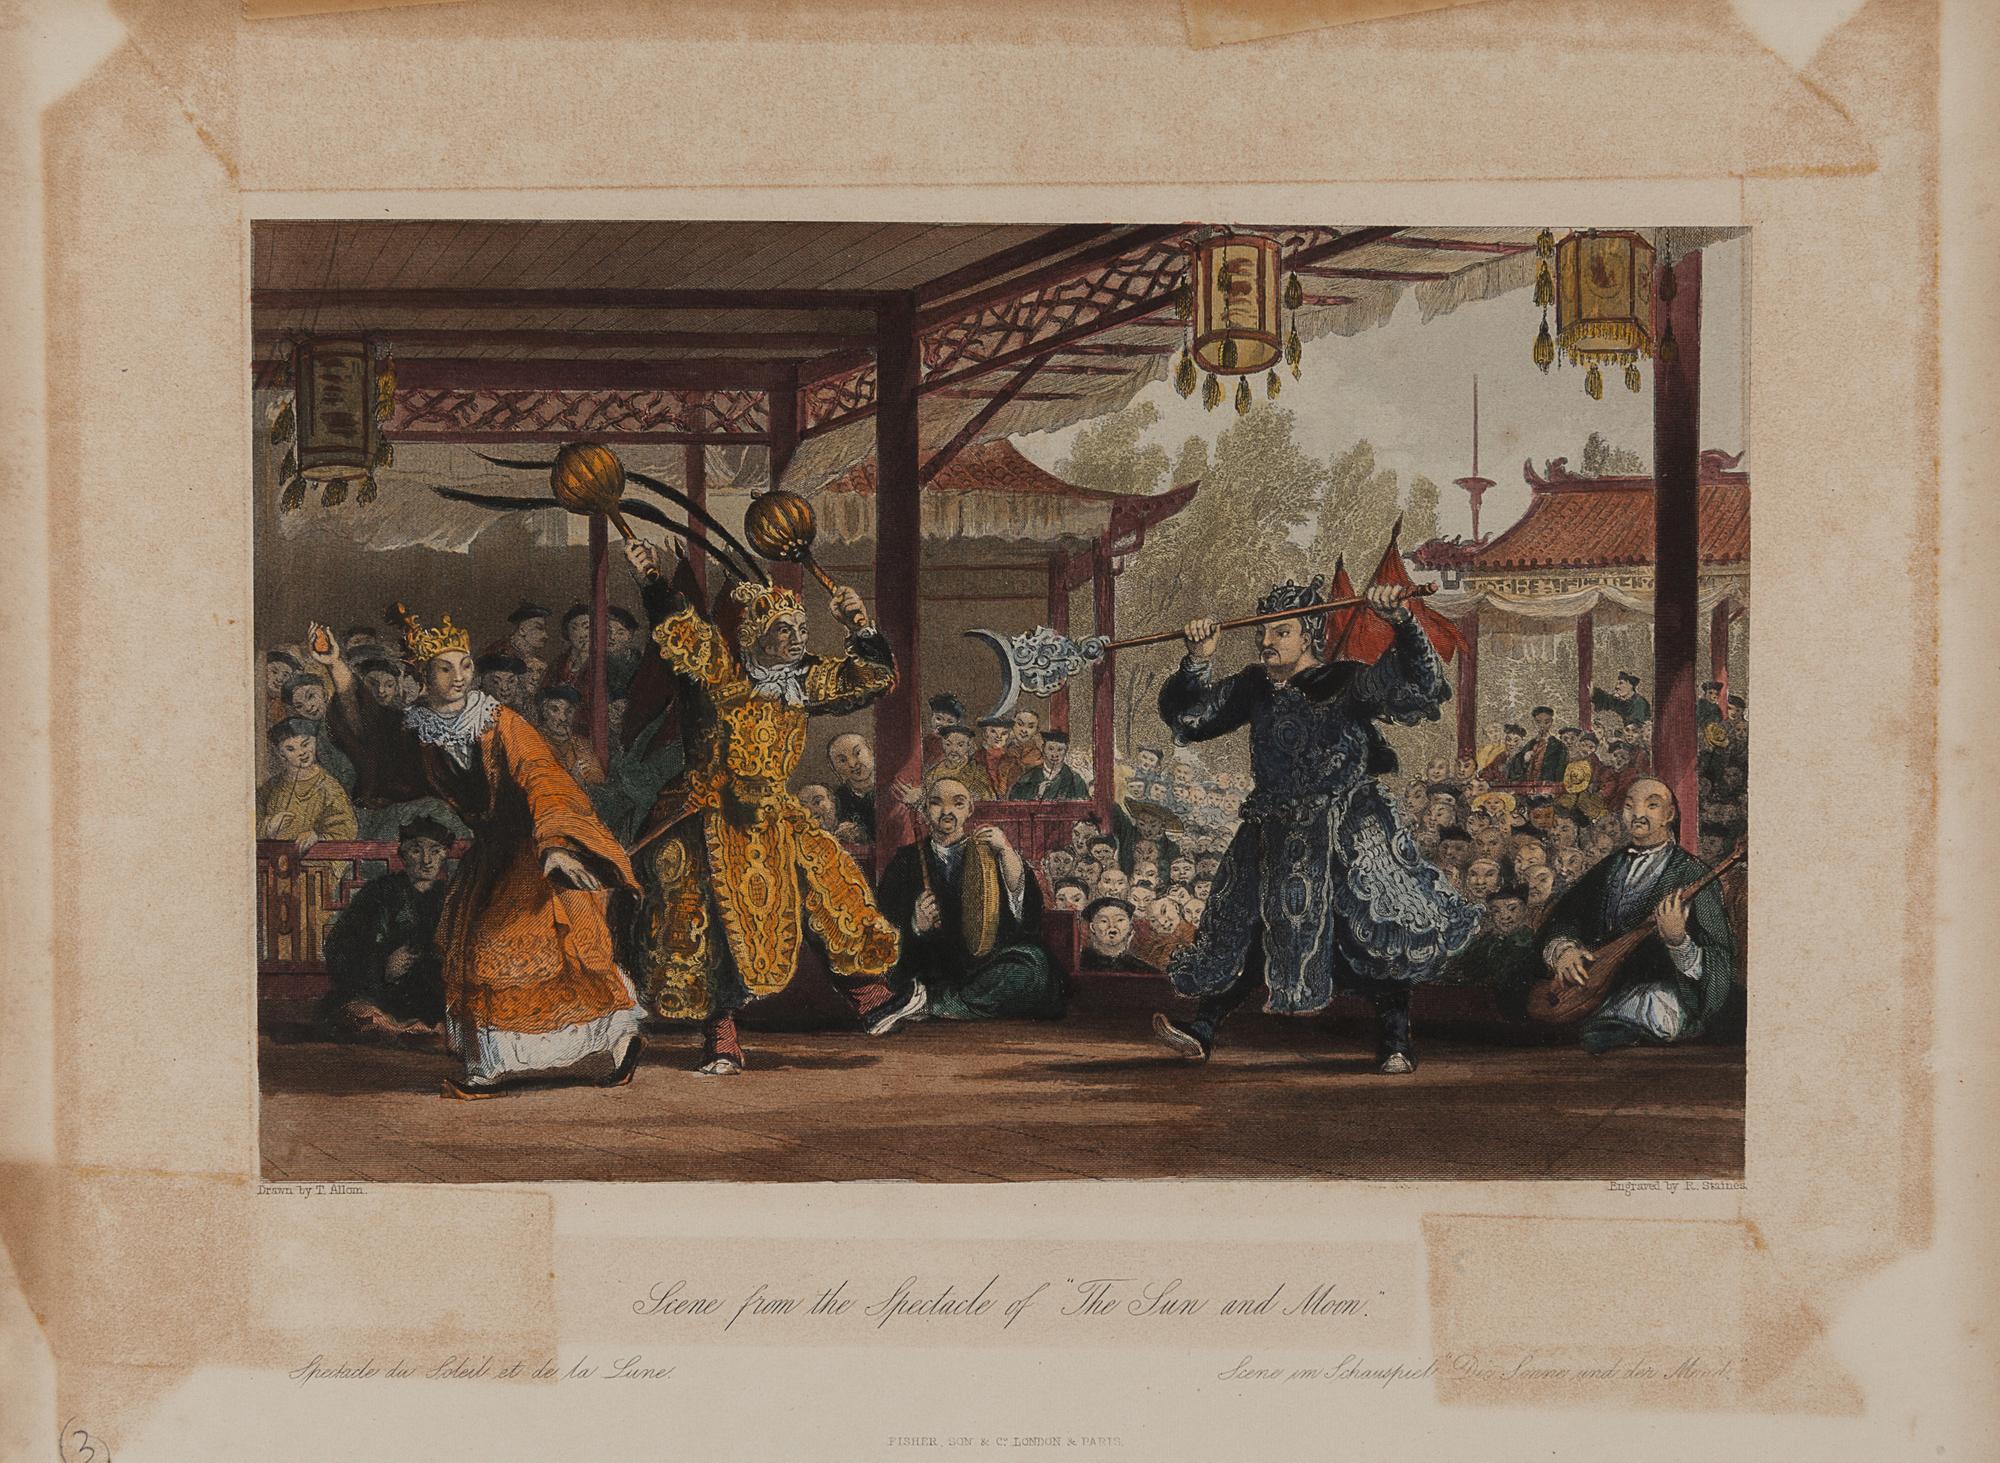 Drawn by T. Allom.
Engraved by R. Staines.
Scene from the Spectacle of "The Sun and Moon."
Spectacle du Soleil et de la Lune.
Scene im Schauspiel "Die Sonne und der Mond."
FISHER, SON & Co. LONDON & PARIS.
3